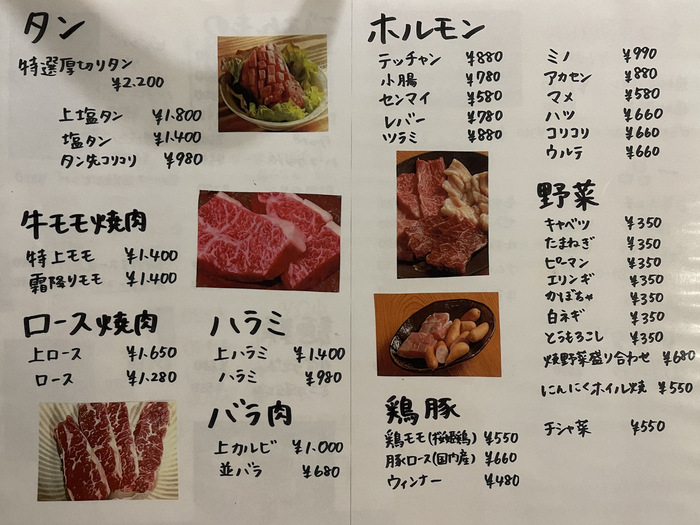 タン
特選厚切りタン
¥2.200
上塩タン ¥1.800
塩タン ¥1.400
タン先コリコリ ¥980
牛モモ焼肉
特上モモ ¥1.400
霜降りモモ ¥1.400
ロース焼肉
上ロース ¥1.650
ロース ¥1.280
ハラミ
上ハラミ ¥1.400
ハラミ ¥980
バラ肉
上カルビ ¥1.000
並バラ ¥680
ホルモン
テッチャン ¥880
小腸 ¥780
センマイ ¥580
レバー ¥780
ツラミ ¥880
ミノ ¥990
アカセン ¥880
マメ ¥580
ハツ ¥660
コリコリ ¥660
ウルテ ¥660
野菜
キャベツ ¥350
たまねぎ ¥350
ピーマン ¥350
エリンギ ¥350
かぼちゃ ¥350
白ネギ ¥350
とうもろこし ¥350
焼野菜盛り合わせ ¥680
にんにくホイル焼 ¥550
チシャ菜 ¥550
鶏豚
鶏モモ(桜姫鶏) ¥550
豚ロース(国内産) ¥660
ウィンナー ¥480